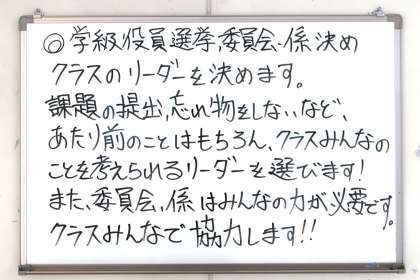 ◎学級役員選挙,委員会・係決め
クラスのリーダーを決めます。
課題の提出,忘れ物をしないなど、
あたり前のことはもちろん、クラスみんなの
ことを考えられるリーダーを選びます!
また、委員会,係はみんなの力が必要です。
クラスみんなで協力します!!